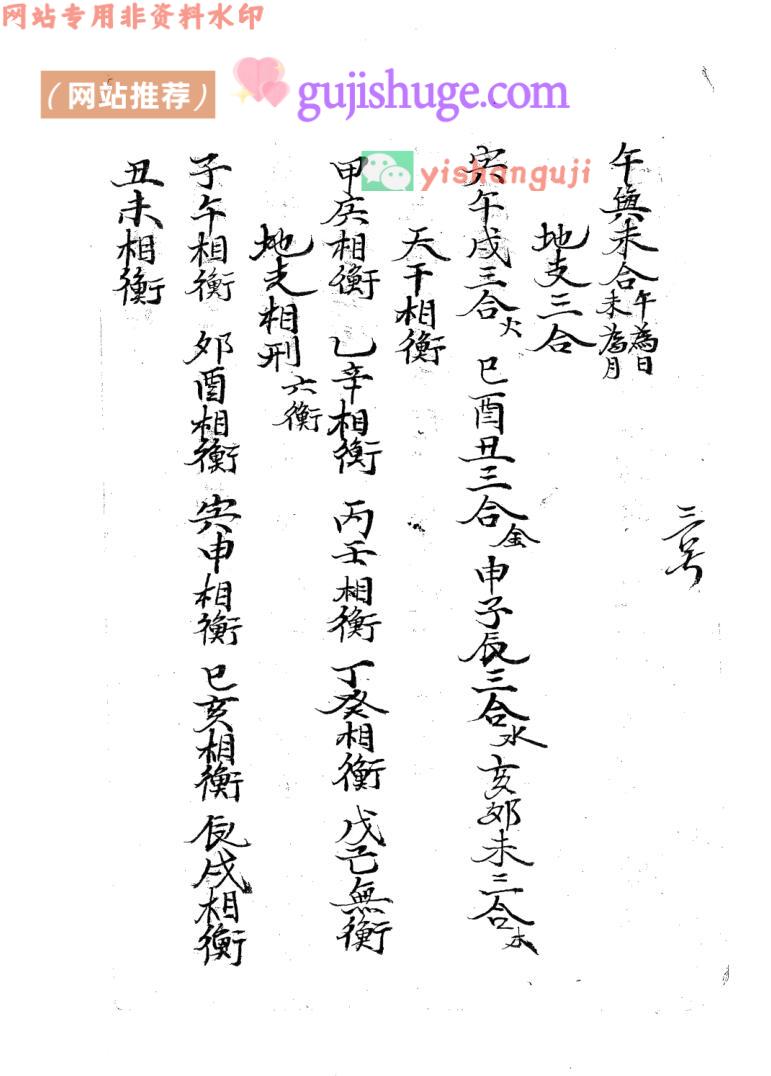 网站专用非资料水印
（网站推荐） gujishuge.com
yishanguji
午與未合 午為日 未為月
地支三合
寅午戌三合火 巳酉丑三合金 申子辰三合水 亥卯未三合木
天干相衡
甲庚相衡 乙辛相衡 丙壬相衡 丁癸相衡 戊己無衡
地支相刑 六衡
子午相衡 卯酉相衡 寅申相衡 巳亥相衡 辰戌相衡
丑未相衡
三号